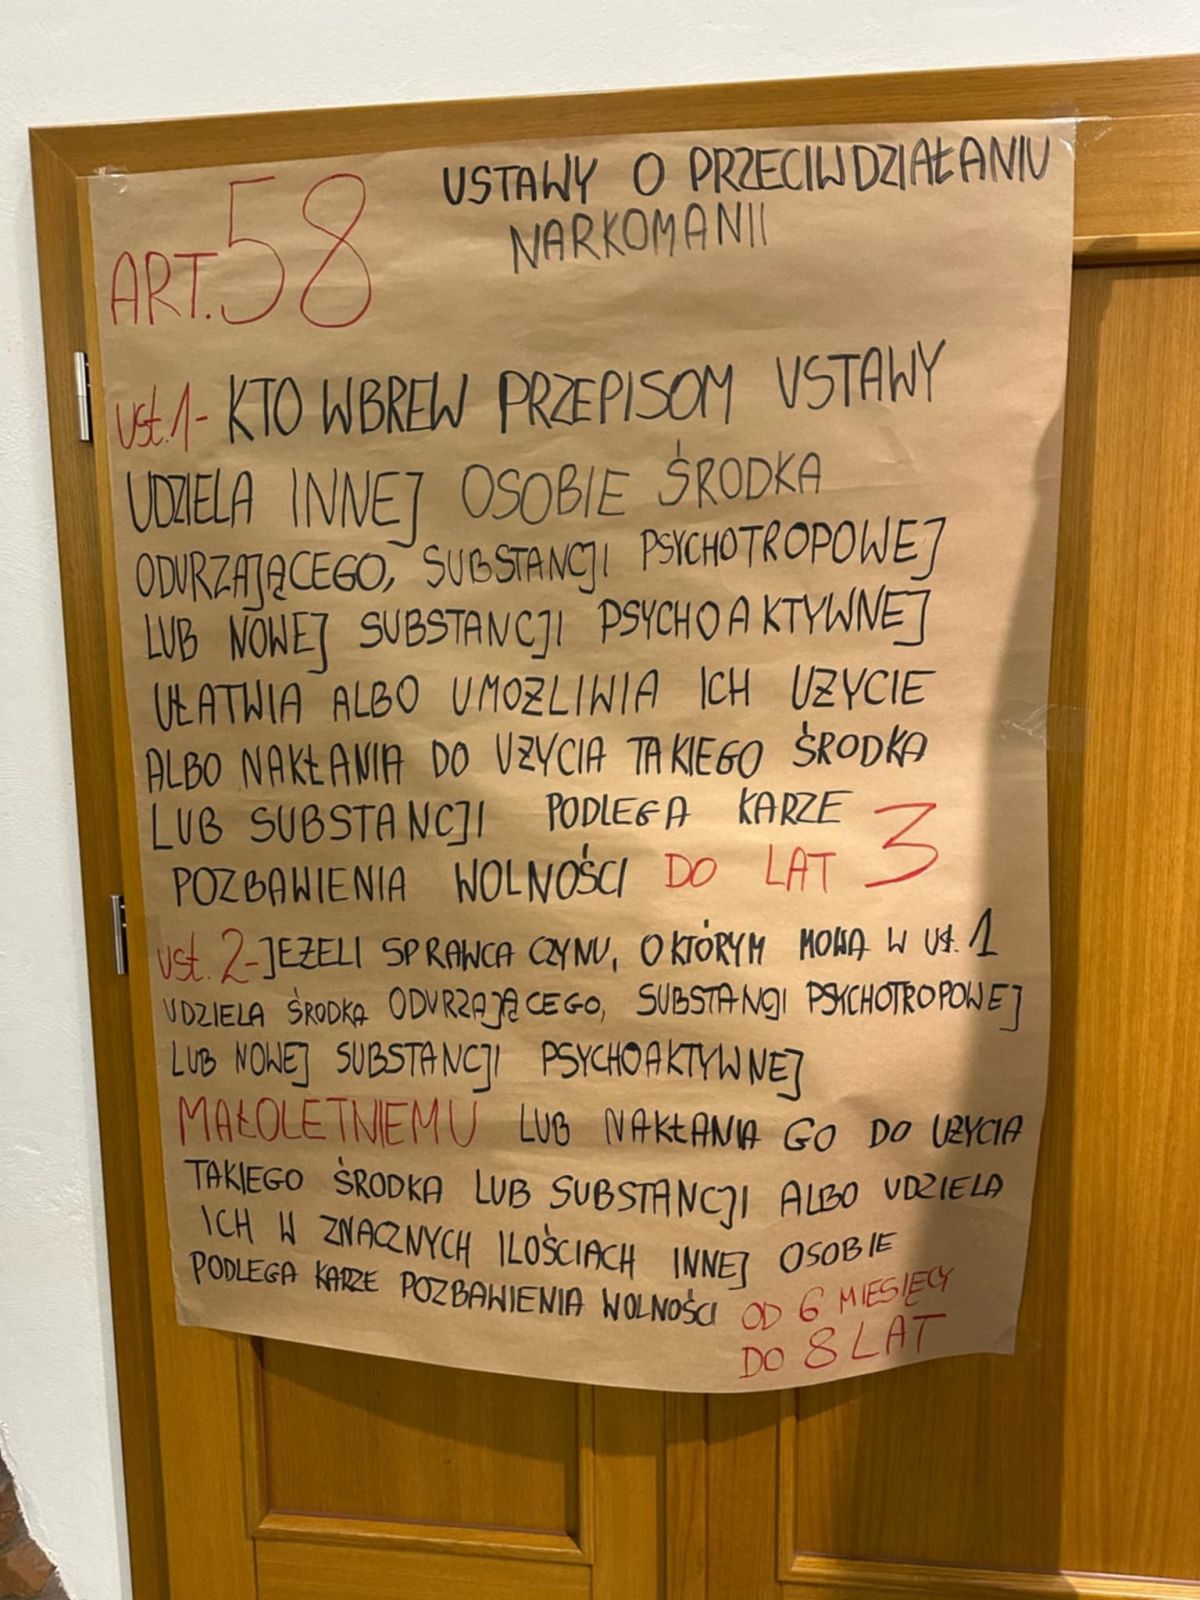 ART. 58 USTAWY O PRZECIWDZIAŁANIU
NARKOMANII
ust. 1 - KTO WBREW PRZEPISOM USTAWY
UDZIELA INNEJ OSOBIE ŚRODKA
ODURZAJĄCEGO, SUBSTANCJI PSYCHOTROPOWEJ
LUB NOWEJ SUBSTANCJI PSYCHOAKTYWNEJ
UŁATWIA ALBO UMOŻLIWIA ICH UŻYCIE
ALBO NAKŁANIA DO UŻYCIA TAKIEGO ŚRODKA
LUB SUBSTANCJI PODLEGA KARZE
POZBAWIENIA WOLNOŚCI DO LAT 3
ust. 2 - JEŻELI SPRAWCA CZYNU, O KTÓRYM MOWA W ust. 1
UDZIELA ŚRODKA ODURZAJĄCEGO, SUBSTANCJI PSYCHOTROPOWEJ
LUB NOWEJ SUBSTANCJI PSYCHOAKTYWNEJ
MAŁOLETNIEMU LUB NAKŁANIA GO DO UŻYCIA
TAKIEGO ŚRODKA LUB SUBSTANCJI ALBO UDZIELA
ICH W ZNACZNYCH ILOŚCIACH INNEJ OSOBIE
PODLEGA KARZE POZBAWIENIA WOLNOŚCI OD 6 MIESIĘCY
DO 8 LAT